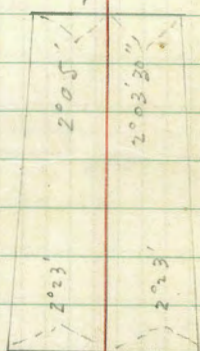 2°05'
2°03'30"
2°23'
2°23'